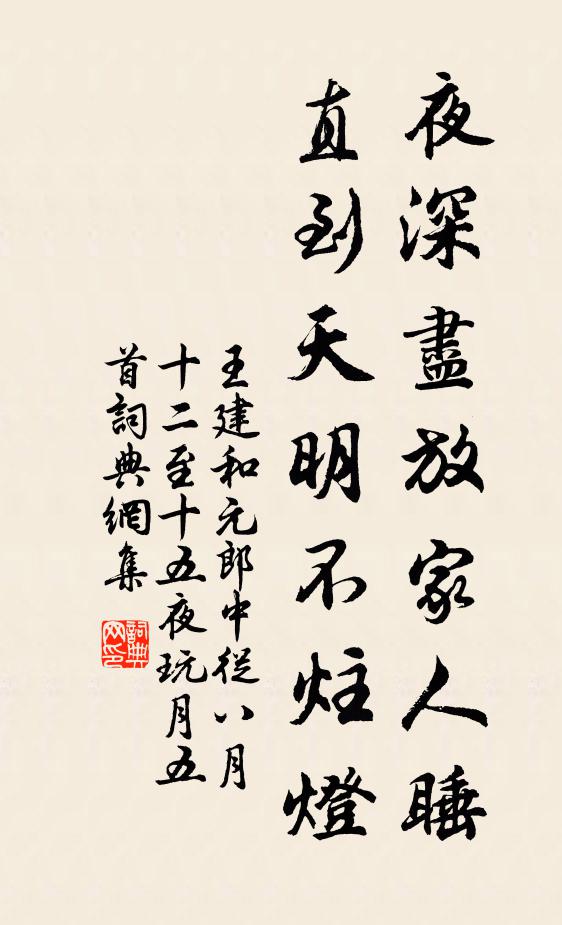 夜深盡放家人睡
直到天明不炷燈
王建和元郎中從八月
十二至十五夜玩月五
首詞典網集
詞典
网印